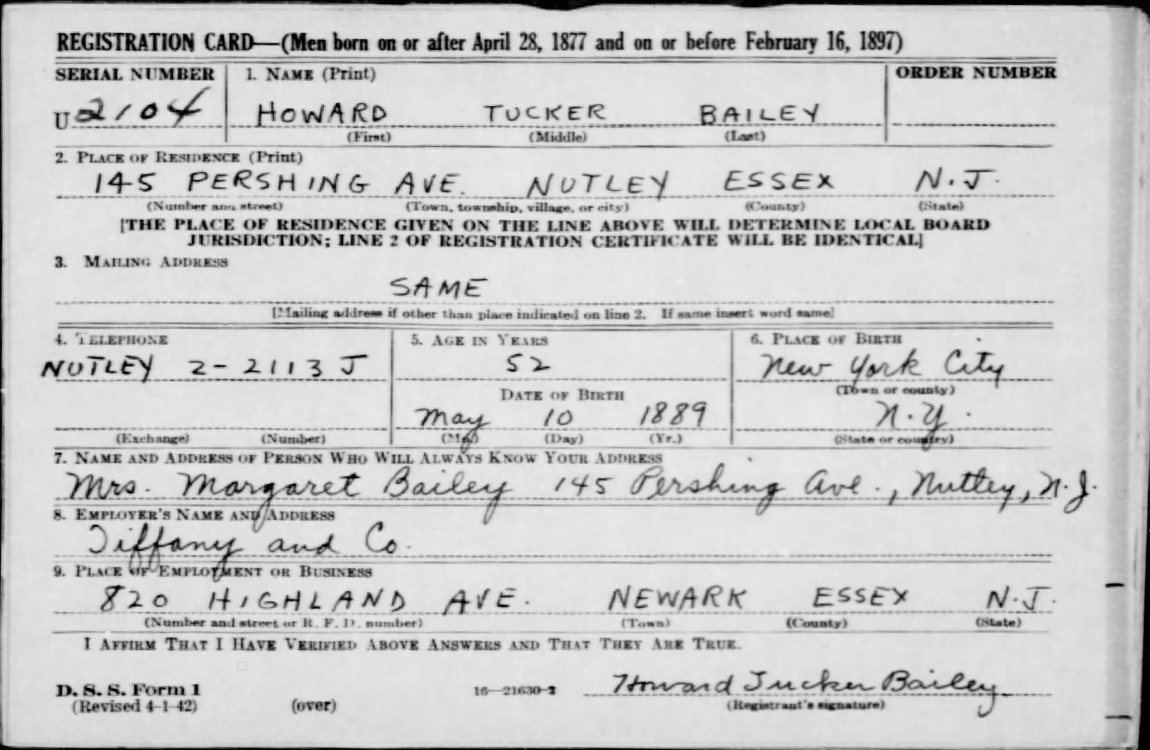 REGISTRATION CARD—(Men born on or after April 28, 1877 and on or before February 16, 1897)
SERIAL NUMBER 1. NAME (Print) ORDER NUMBER
U 2104 HOWARD TUCKER BAILEY
(First) (Middle) (Last)
2. PLACE OF RESIDENCE (Print)
145 PERSHING AVE. NUTLEY ESSEX N.J.
(Number and street) (Town, township, village, or city) (County) (State)
[THE PLACE OF RESIDENCE GIVEN ON THE LINE ABOVE WILL DETERMINE LOCAL BOARD
JURISDICTION; LINE 2 OF REGISTRATION CERTIFICATE WILL BE IDENTICAL]
3. MAILING ADDRESS
SAME
[Mailing address if other than place indicated on line 2. If same insert word same]
4. TELEPHONE 5. AGE IN YEARS 6. PLACE OF BIRTH
NUTLEY 2-2113 J 52 New York City
DATE OF BIRTH (Town or county)
May 10 1889 N.Y.
(Exchange) (Number) (Mo.) (Day) (Yr.) (State or country)
7. NAME AND ADDRESS OF PERSON WHO WILL ALWAYS KNOW YOUR ADDRESS
Mrs. Margaret Bailey 145 Pershing Ave., Nutley, N.J.
8. EMPLOYER'S NAME AND ADDRESS
Tiffany and Co.
9. PLACE OF EMPLOYMENT OR BUSINESS
820 HIGHLAND AVE. NEWARK ESSEX N.J.
(Number and street or R. F. D. number) (Town) (County) (State)
I AFFIRM THAT I HAVE VERIFIED ABOVE ANSWERS AND THAT THEY ARE TRUE.
D. S. S. Form 1
(Revised 4-1-42) (over) 16—21630-2 Howard Tucker Bailey
(Registrant's signature)